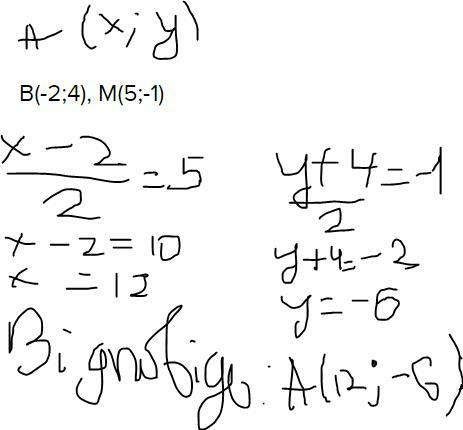 A (x; y)
B(-2;4), M(5;-1)
x - 2 / 2 = 5
y + 4 / 2 = -1
x - 2 = 10
y + 4 = -2
x = 12
y = -6
Відповідь: A(12; -6)